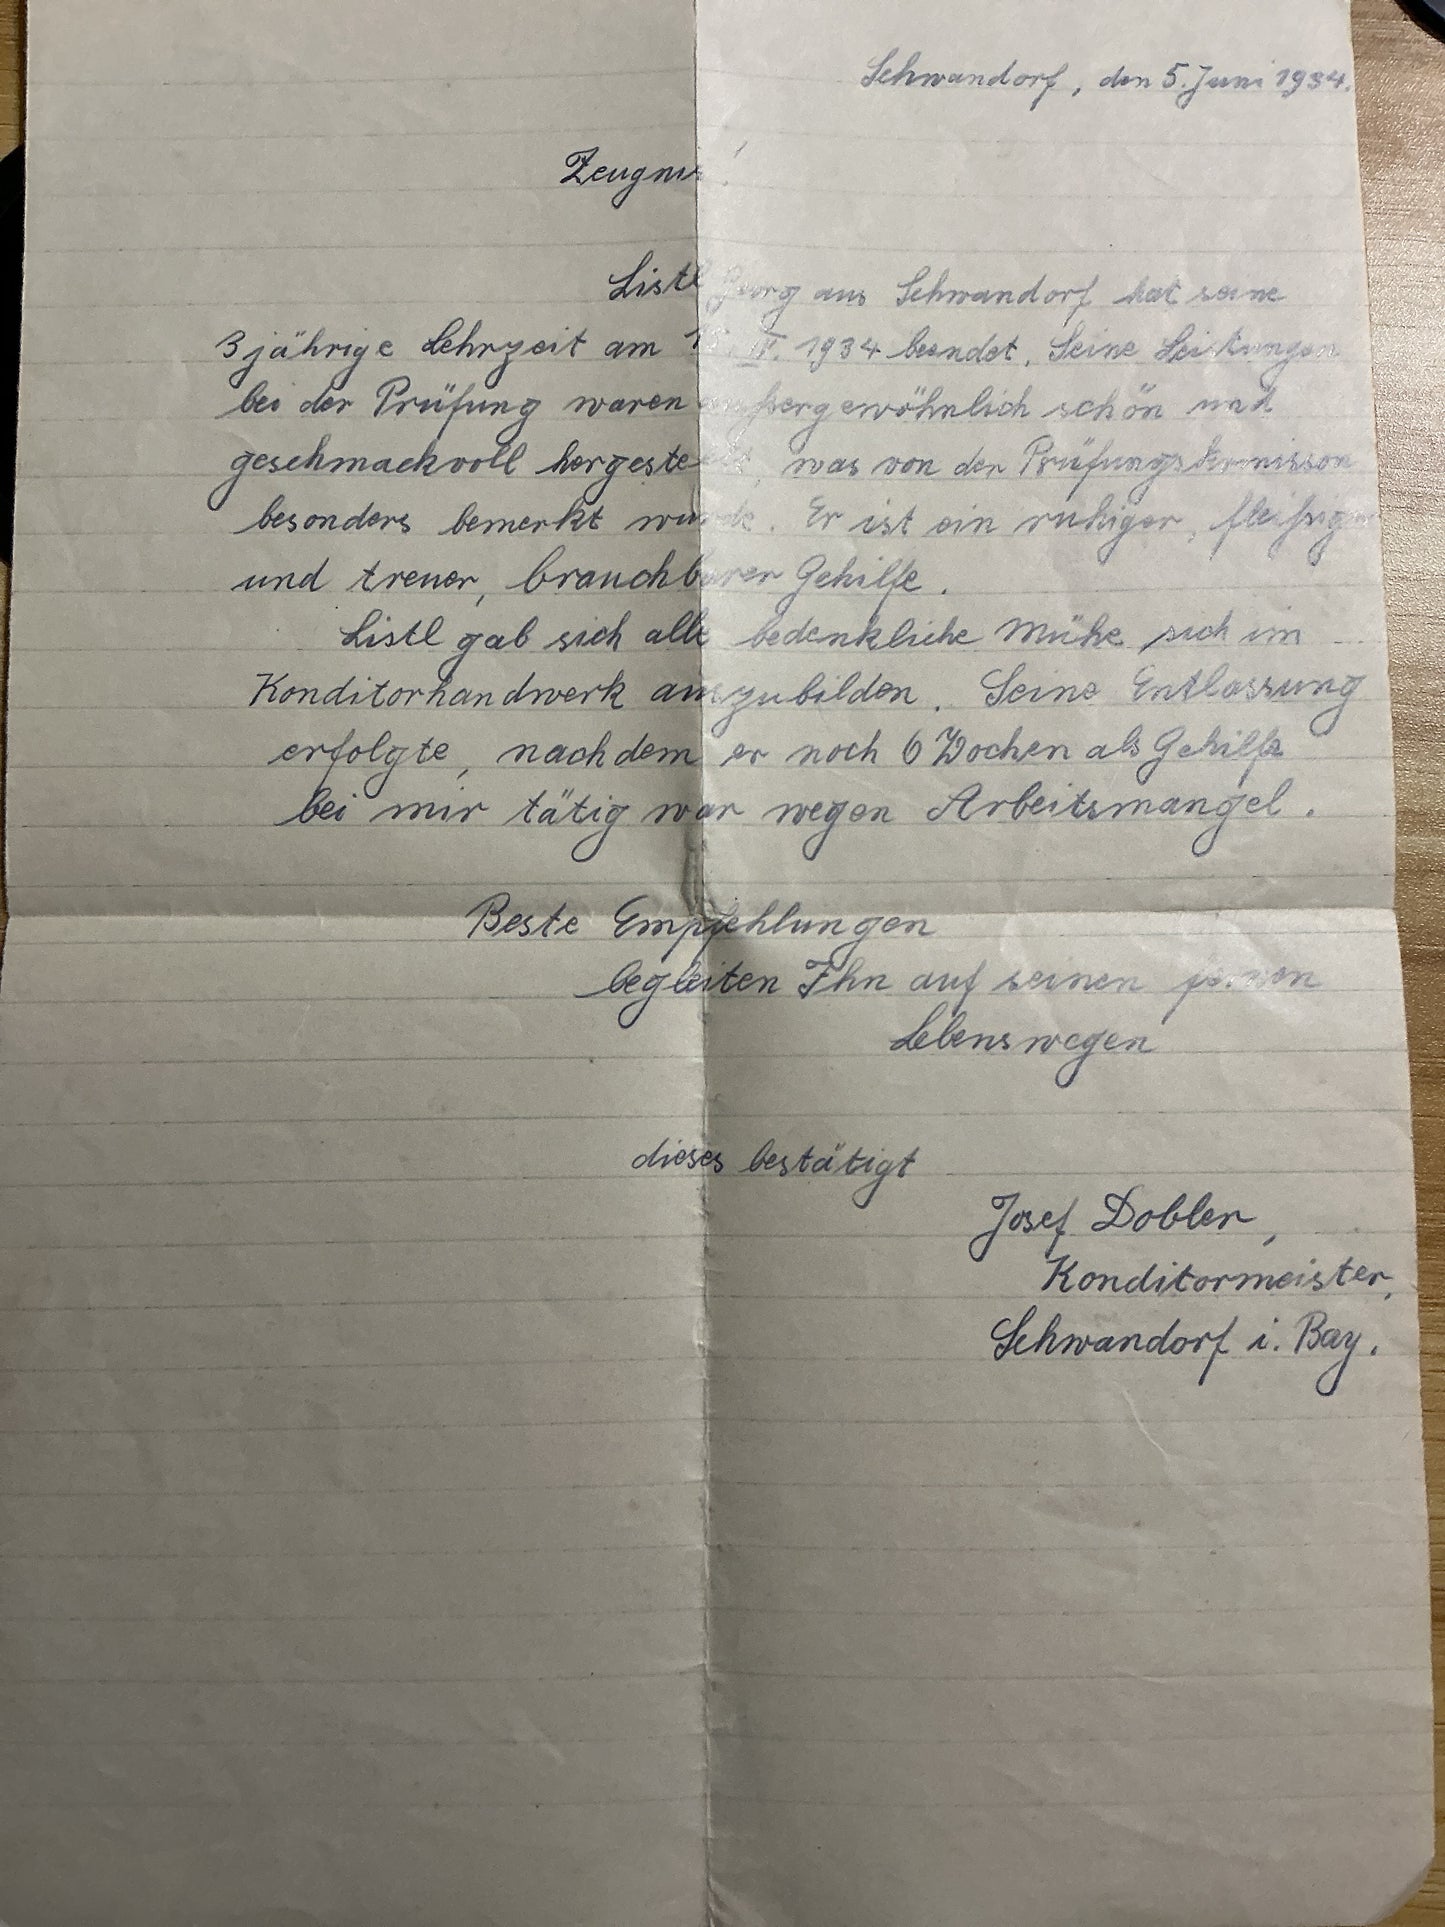 Schwandorf, den 5. Juni 1934.
Zeugnis!
Listl Georg aus Schwandorf hat seine
3 jährige Lehrzeit am IV. 1934 beendet. Seine Leistungen
bei der Prüfung waren aussergewöhnlich schön und
geschmackvoll hergestellt, was von der Prüfungskommisson
besonders bemerkt wurde. Er ist ein ruhiger, fleißiger
und treuer, brauchbarer Gehilfe.
Listl gab sich alle bedenkliche Mühe sich im
Konditorhandwerk auszubilden. Seine Entlassung
erfolgte, nachdem er noch 6 Wochen als Gehilfe
bei mir tätig war wegen Arbeitsmangel.
Beste Empfehlungen
begleiten Ihn auf seinen
Lebenswegen
dieses bestätigt
Josef Dobler,
Konditormeister,
Schwandorf i. Bay.